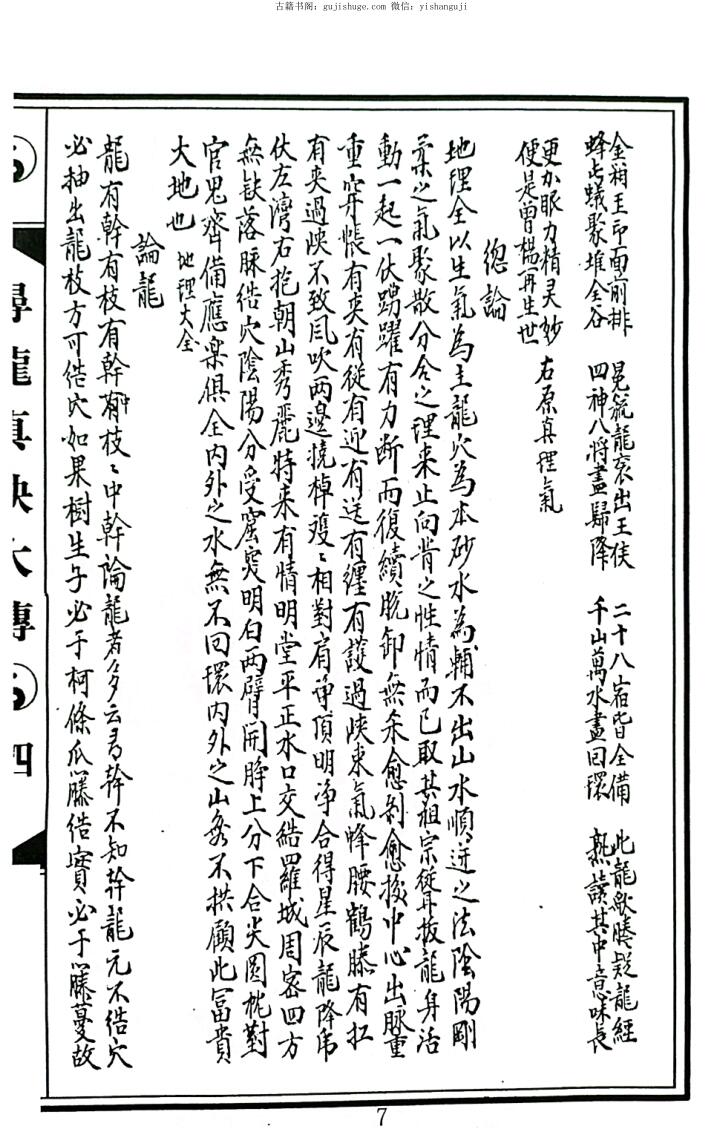 古籍书阁：gujishuge.com 微信：yishanguji
金箱玉印面前排 冕旒龍衮出王侯 二十八宿皆全備 此龍歌勝疑龍經
蜂屯蟻聚堆全谷 四神八將盡歸降 千山萬水盡回環 熟讀其中意味長
更加眼力精灵妙
便是曾楊再生世 右原真理氣
總論
地理全以生氣為主龍穴為本砂水為輔不出山水順逆之法陰陽剛
柔之氣聚散分合之理来止向背之性情而已取其祖宗從耳拔龍身活
動一起一伏踴躍有力断而復續脱卸無杀愈剥愈换中心出脉重
重穿帳有夹有從有迎有送有纏有護過峡束氣蜂腰鶴膝有扛
有夹過峡不致風吹两邊撓棹䕶〻相對肩淨頂明净合得星辰龍降虎
伏左灣右抱朝山秀麗特来有情明堂平正水口交結羅城周密四方
無缺落脉结穴陰陽分受窟突明白两臂開睁上分下合尖圆枕對
官鬼齊備應樂俱全内外之水無不回環内外之山無不拱顧此富貴
大地也 地理大全
論龍
龍有幹有枝有幹中有枝〻中幹論龍者多云看幹不知幹龍元不结穴
必抽出龍枝方可结穴如果樹生子必于柯條瓜籐结實必于籐蔓故
尋龍真訣大傳 四
7